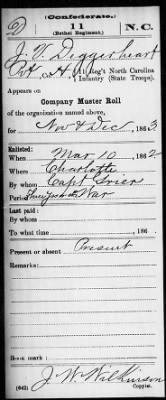 (Confederate.)
2 11 N.C.
(Bethel Regiment.)
J. W. Deggerheart
Pvt, Co. H, 11 Reg't North Carolina
Infantry (State Troops).
Appears on
Company Muster Roll
of the organization named above,
for Nov & Dec, 1863.
Enlisted:
When Mar 10, 1862.
Where Charlotte
By whom Capt Grier
Period Three Years or the War
Last paid:
By whom
To what time , 186 .
Present or absent Present
Remarks:
Book mark:
J. W. Wilkinson
(642) Copyist.